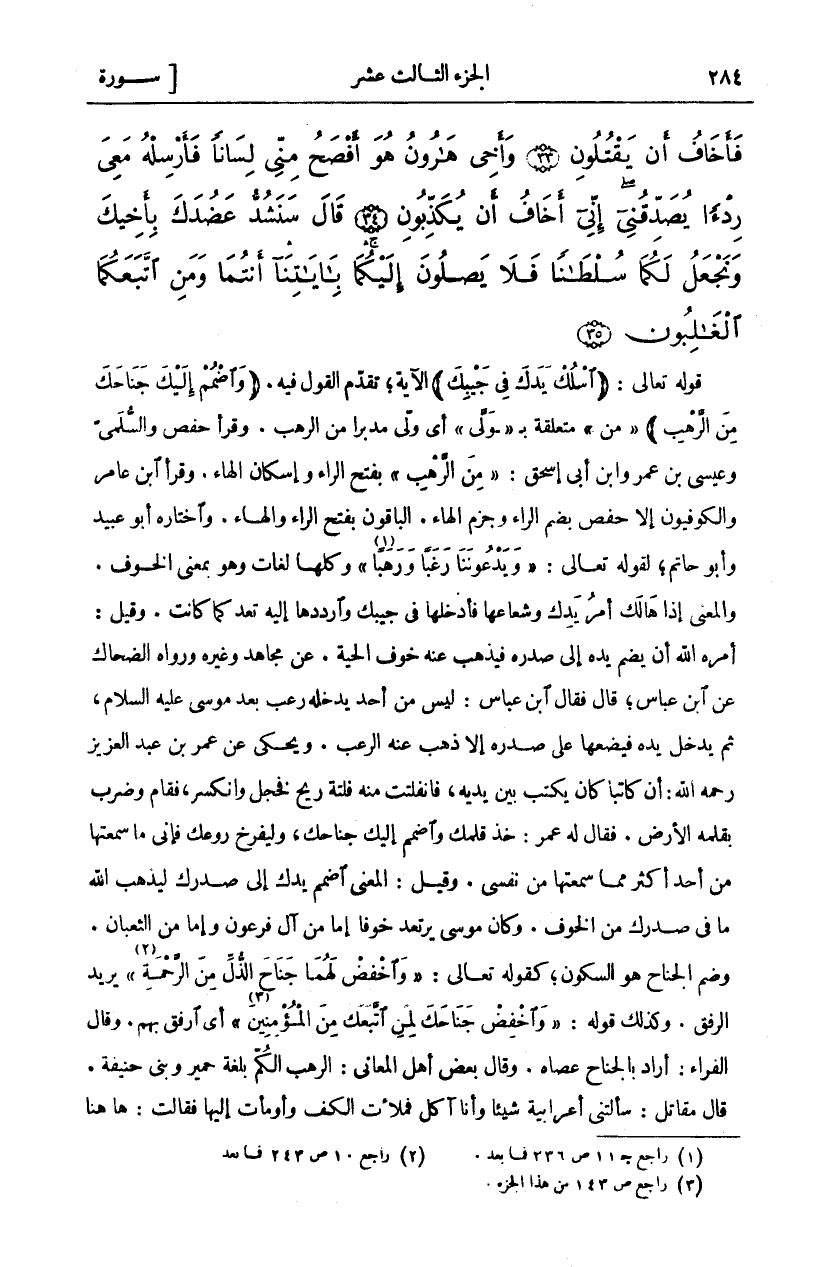 ٢٨٤ الجزء الثالث عشر [ سورة
فَأَخَافُ أَن يَقْتُلُونِ ﴿٣٣﴾ وَأَخِى هَـٰرُونُ هُوَ أَفْصَحُ مِنِّى لِسَانًا فَأَرْسِلْهُ مَعِىَ
رِدْءًا يُصَدِّقُنِىٓ إِنِّىٓ أَخَافُ أَن يُكَذِّبُونِ ﴿٣٤﴾ قَالَ سَنَشُدُّ عَضُدَكَ بِأَخِيكَ
وَنَجْعَلُ لَكُمَا سُلْطَـٰنًا فَلَا يَصِلُونَ إِلَيْكُمَا بِـَٔايَـٰتِنَآ أَنتُمَا وَمَنِ ٱتَّبَعَكُمَا
ٱلْغَـٰلِبُونَ ﴿٣٥﴾
قوله تعالى : ﴿ٱسْلُكْ يَدَكَ فِى جَيْبِكَ﴾ الآية؛ تقدّم القول فيه. ﴿وَٱضْمُمْ إِلَيْكَ جَنَاحَكَ
مِنَ الرَّهْبِ ﴾ « من » متعلقة بـ « ـوَلَّى » أى ولّى مدبرا من الرهب . وقرأ حفص والسُّلَمىّ
وعيسى بن عمر وابن أبى إسحق : « مِنَ الرَّهْبِ » بفتح الراء وإسكان الهاء . وقرأ ٱبن عامر
والكوفيون إلا حفص بضم الراء وجزم الهاء . الباقون بفتح الراء والهـاء . وٱختاره أبو عبيد
وأبو حاتم؛ لقوله تعـالى : « وَيَدْعُونَنَا رَغَبًا وَرَهَبًا(١) » وكلهـا لغات وهو بمعنى الخـوف .
والمعنى إذا هَالَك أمرُ يَدِك وشعاعها فأدخلها فى جيبك وٱرددها إليه تعد كما كانت . وقيل :
أمره الله أن يضم يده إلى صدره فيذهب عنه خوف الحية . عن مجاهد وغيره ورواه الضحاك
عن ٱبن عباس؛ قال فقال ٱبن عباس : ليس من أحد يدخله رعب بعد موسى عليه السلام،
ثم يدخل يده فيضعها على صـدره إلا ذهب عنه الرعب . ويحـكى عن عمر بن عبد العزيز
رحمه الله: أن كاتبا كان يكتب بين يديه، فانفلتت منه فلتة ريح فخجل وانكسر، فقام وضرب
بقلمه الأرض . فقال له عمر : خذ قلمك وٱضمم إليك جناحك، وليفرخ روعك فإنى ما سمعتها
من أحد أكثر ممـا سمعتها من نفسى . وقيـل : المعنى ٱضمم يدك إلى صـدرك ليذهب الله
ما فى صـدرك من الخوف . وكان موسى يرتعد خوفا إما من آل فرعون وإما من الثعبان .
وضم الجناح هو السكون؛ كقوله تعـالى : « وَٱخْفِضْ لَهُمَا جَنَاحَ الذُّلِّ مِنَ الرَّحْمَةِ(٢) » يريد
الرفق . وكذلك قوله : « وَٱخْفِضْ جَنَاحَكَ لِمَنِ ٱتَّبَعَكَ مِنَ الْمُؤْمِنِينَ(٣) » أى ٱرفق بهم. وقال
الفراء : أراد بالجناح عصاه . وقال بعض أهل المعانى : الرهب الكُمّ بلغة حمير وبنى حنيفة .
قال مقاتل : سألتنى أعرابية شيئا وأنا آكل فملأت الكف وأومأت إليها فقالت : ها هنا
(١) راجع جـ ١١ ص ٢٣٦ فما بعد . (٢) راجع ١٠ ص ٢٤٣ فما بعد
(٣) راجع ص ١٤٣ من هذا الجزء .